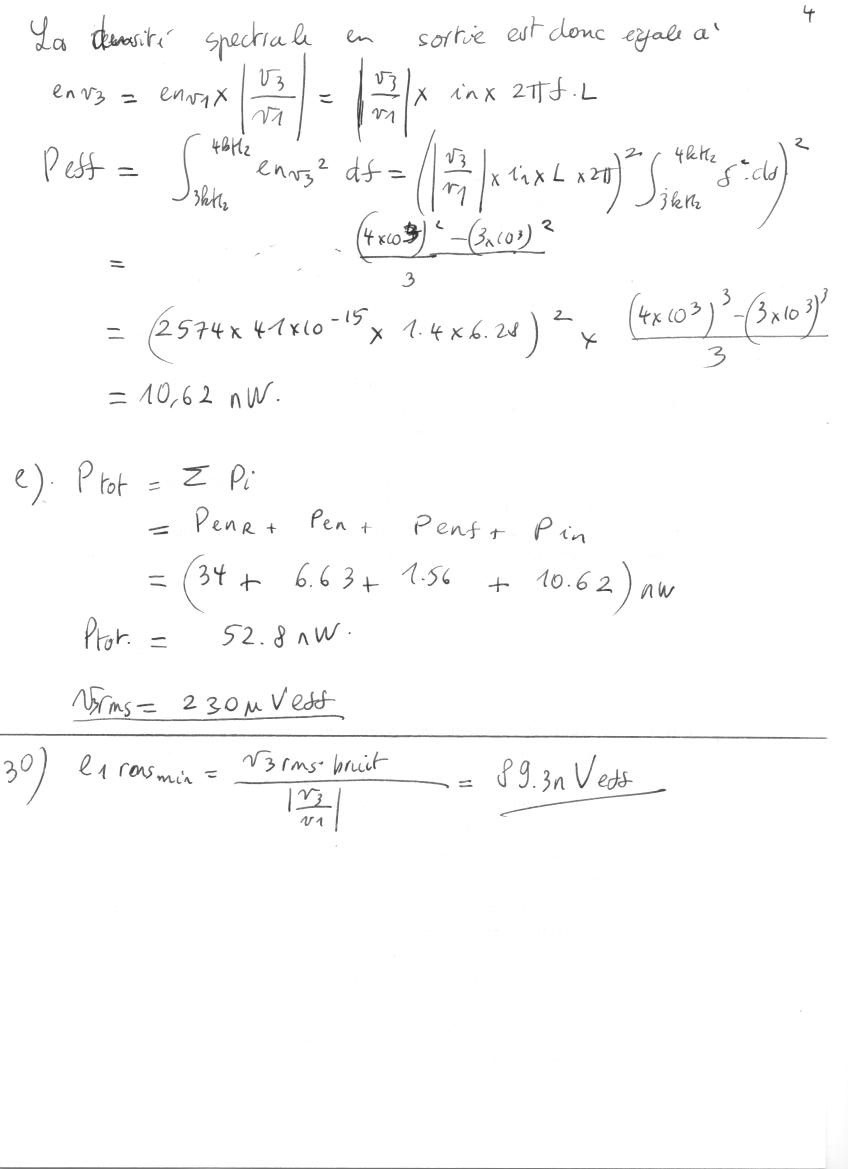 4
La densité spectrale en sortie est donc egale a'
env3 = env1 × |v3/v1| = |v3/v1| × in × 2πf.L
Peff = ∫_{3kHz}^{4kHz} env3² df = (|v3/v1| × in × L × 2π)² ∫_{3kHz}^{4kHz} f².df)²
= ((4×10³)² - (3×10³)²)/3
= (2574 × 41×10⁻¹⁵ × 1.4 × 6.28)² × ((4×10³)³ - (3×10³)³)/3
= 10,62 nW.
e). Ptot = Σ Pi
= PenR + Pen + Penf + Pin
= (34 + 6.63 + 1.56 + 10.62) nW
Ptot. = 52.8 nW.
V3rms = 230μ Veff
3°) e1 rms min = (V3rms. bruit)/|v3/v1| = 89.3n Veff